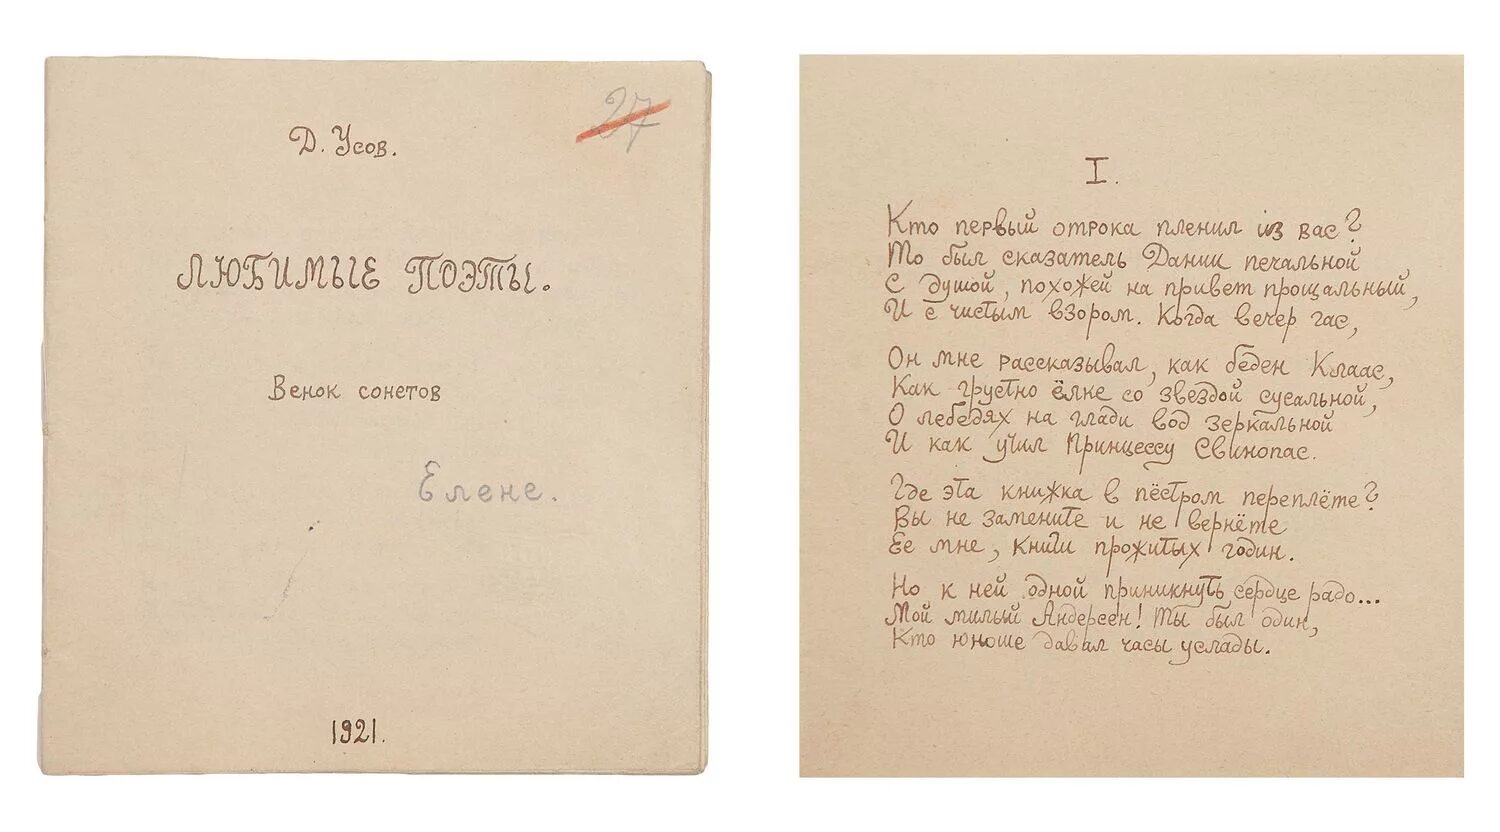 Д. Усов.
27
ЛЮБИМЫЕ ПОЭТЫ.
Венок сонетов
Елене.
1921.
I.
Кто первый отрока пленил из вас?
То был сказатель Дании печальной
С душой, похожей на привет прощальный,
И с чистым взором. Когда вечер гас,
Он мне рассказывал, как беден Клаас,
Как грустно ёлке со звездой сусальной,
О лебедях на глади вод зеркальной
И как учил Принцессу Свинопас.
Где эта книжка в пёстром переплёте?
Вы не замените и не вернёте
Ее мне, книги прожитых годин.
Но к ней одной приникнуть сердце радо...
Мой милый Андерсен! Ты был один,
Кто юноше давал часы услады.